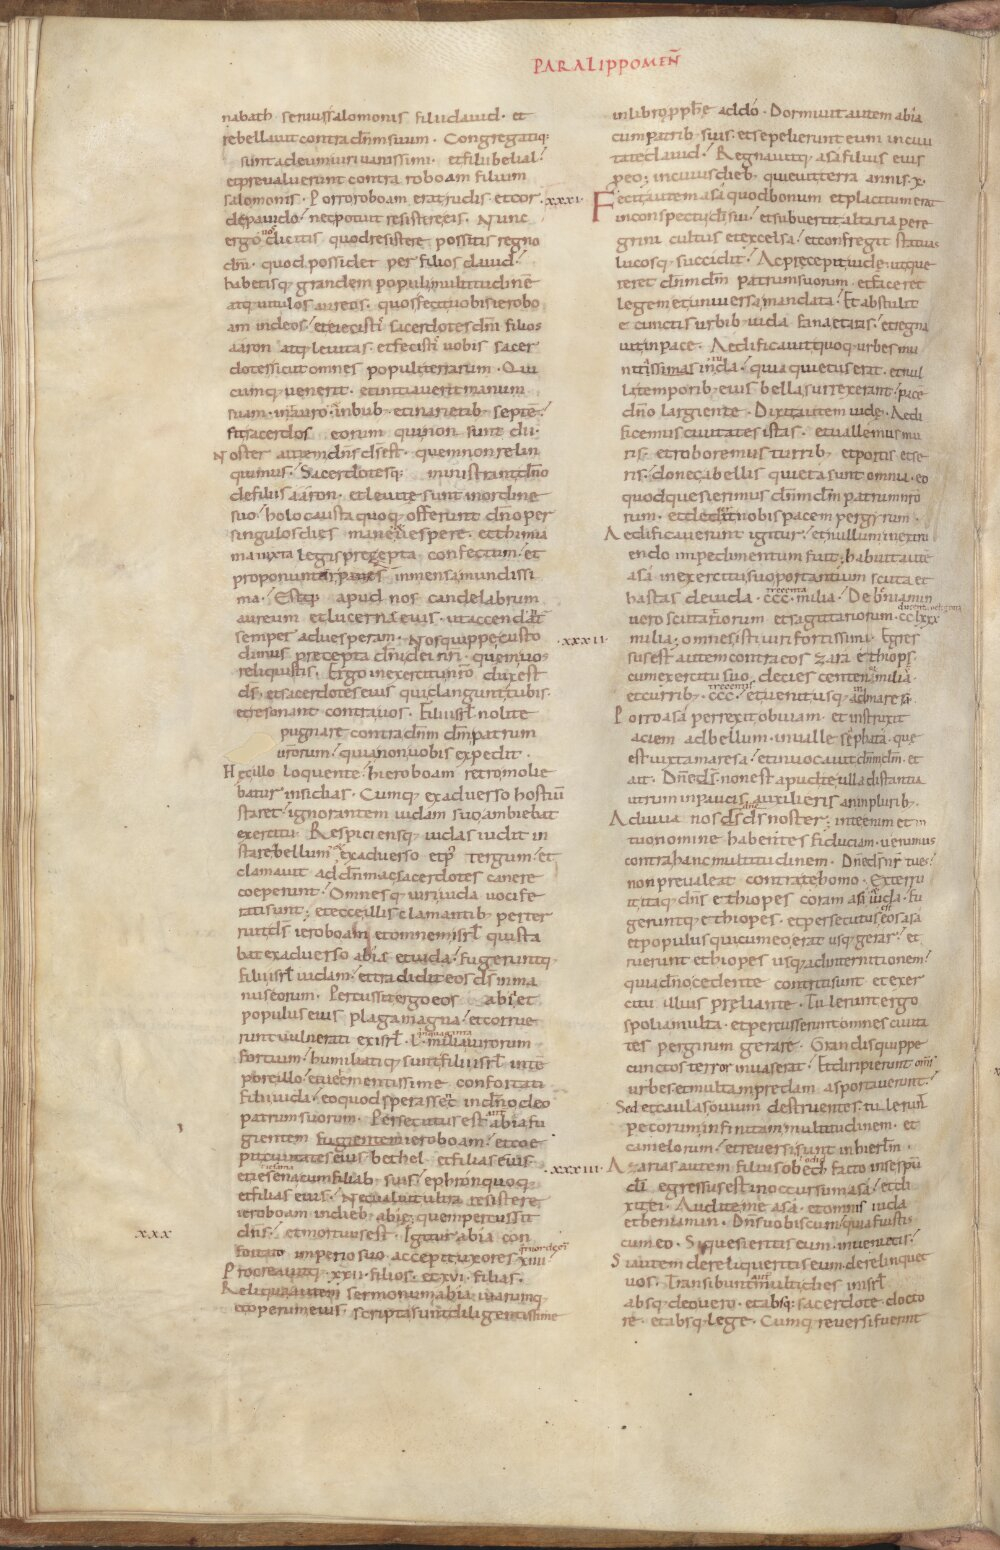 PARALIPPOMEN̄
nabath seruus salomonis filii dauid · et
rebellauit contra dn̄m suum · Congregatiq;
sunt ad eum uiri uanissimi · et filii belial ·
et preualuerunt contra roboam filium
salomonis · Porro roboam erat rudis et cor
de pauido · nec potuit resistere eis · Nunc
ergo uos dicitis quod resistere possitis regno
dn̄i · quod possidet per filios dauid ·
habetisq; grandem populi multitudinē
atq; uitulos aureos · quos fecit uobis ierobo
am in deos · et eiecistis sacerdotes dn̄i filios
aaron atq; leuitas · et fecistis uobis sacer
dotes sicut omnes populi terrarum · Qui
cumq; uenerit · et initiauerit manum
suam · in tauro · in bub; et in arietib; septē ·
fit sacerdos eorum qui non sunt dii ·
Noster autem dn̄s d̄s est · quem non relin
quimus · Sacerdotesq; ministrant dn̄o
de filiis aaron · et leuite sunt in ordine
suo · holocausta quoq; offerunt dn̄o per
singulos dies mane et uespere · et thimia
ma iuxta legis precepta confectum · et
proponuntur panes in mensa mundissi
ma · Estq; apud nos candelabrum
aureum et lucerna eius · ut accendāt
semper ad uesperam · Nos quippe custo
dimus precepta dn̄i dei nr̄i · quem uos
reliquistis · Ergo in exercitu nr̄o dux est
d̄s · et sacerdotes eius qui clangunt tubis ·
et resonant contra uos · Filii isrl̄ nolite
pugnare contra dn̄m dm̄ patrum
urōrum · quia non uobis expedit ·
Hec illo loquente · hieroboam retro molie
batur insidias · Cumq; ex aduerso hostiū
staret · ignorantem iudam suo ambiebat
exercitu · Respiciensq; iudas uidit in
stare bellum ex aduerso et p̄ tergum · et
clamauit ad dn̄m ac sacerdotes canere
coeperunt · Omnesq; uiri iuda uocife
rati sunt · et ecce illis clamantib; perter
ruit d̄s ieroboam et omnem isrl̄ qui sta
bat ex aduerso abia et iuda · fugeruntq;
filii isrl̄ iudam · et tradidit eos d̄s in ma
nus eorum · Percussit ergo eos abia et
populus eius plaga magna · et corrue
runt uulnerati ex isrl̄ · L quinquaginta milia uirorum
fortium · humiliatiq; sunt filii isrl̄ in tē
pore illo · et uehementissime confortati
filii iuda · eo quod sperassent in dn̄o deo
patrum suorum · Persecutus est autē abia fu
gientem fugientem ieroboam · et coe
pit ciuitates eius bethel et filias eius ·
et iesena cum filiab; suis · ephron quoq;
et filias eius · Nec ualuit ultra resistere
ieroboam in dieb; abię · quem percussit
dn̄s · et mortuus est · Igitur abia con
fortato imperio suo · accepit uxores · XIIII · quatuordecī
Procreauitq; · XXII · filios · et XVI · filias ·
Reliqua autem sermonum abia uiarumq;
et operum eius · scripta sunt diligentissime
XXX
in libro pphē addo · Dormiuit autem abia
cum patrib; suis · et sepelierunt eum in ciui
tate dauid · Regnauitq; asa filius eius
p̄ eo · in cuius dieb; quieuit terra annis · X ·
XXXI · Fecit autem asa quod bonum et placitum erat
in conspectu di sui · et subuertit altaria pere
grini cultus et excelsa · et confregit statuas
lucosq; succidit · Ac precepit iude · ut que
reret dn̄m dm̄ patrum suorum · et faceret
legem et uniuersa mandata · Et abstulit
e cunctis urbib; iuda fana et aras · et regna
uit in pace · Aedificauit quoq; urbes mu
nitissimas in iuda · quia quietus erat · et nul
la temporib; eius bella surrexerant · pacē
dn̄o largiente · Dixit autem iude · Aedi
ficemus ciuitates istas · et uallemus mu
ris · et roboremus turrib; et portis et se
ris · donec a bellis quieta sunt omnia · eo
quod quesierimus dn̄m dm̄ patrum nr̄o
rum · et dederit nobis pacem per gyrum ·
Aedificauerunt igitur · et nullum in extru
endo impedimentum fuit · habuit autē
asa in exercitu suo portantium scuta et
hastas de iuda · CCC · trecenta milia · De beniamin
uero scutariorum et sagittariorum · CCLXXX ducenta octoginta
XXXII · milia · omnes isti uiri fortissimi · Egres
sus est autem contra eos zara ethiops ·
cum exercitu suo decies centena milia ·
et currib; · CCC · trecentis et uenit usq; ad maresa ·
Porro asa perrexit obuiam · et instruxit
aciem ad bellum · in ualle sephata · que
est iuxta maresa · et inuocauit dn̄m dm̄ · et
ait · Dn̄e d̄s · non est apud te ulla distantia
utrum in paucis auxilieris an in plurib; ·
Adiuua nos dn̄e d̄s noster · in te enim et in
tuo nomine habentes fiduciam · uenimus
contra hanc multitudinem · Dn̄e d̄s nr̄ tu es ·
non preualeat contra te homo · Exterru
it itaq; dn̄s ethiopes coram asa et iuda · fu
geruntq; ethiopes · et persecutus est eos asa
et populus qui cum eo erat usq; gerar · et
ruerunt ethiopes usq; ad internitionem ·
quia dn̄o cedente contriti sunt et exer
citu illius preliante · Tulerunt ergo
spolia multa · et percusserunt omnes ciuita
tes per girum gerare · Grandis quippe
cunctos terror inuaserat · Et diripierunt om̄s
urbes · et multam predam asportauerunt ·
Sed et caulas ouium destruentes · tulerunt
pecorum infinitam multitudinem · et
camelorum · et reuersi sunt in hierlm̄ ·
XXXIII · Azarias autem filius obeth facto in se spū
di egressus est in occursum asa · et di
xit ei · Audite me asa · et omnis iuda
et beniamin · Dn̄s uobiscum · quia fuistis
cum eo · Si quesieritis eum · inuenietis ·
Si autem dereliqueritis eum · derelinquet
uos · Transibunt autē multi dies in isrl̄
absq; deo uero · et absq; sacerdote docto
re · et absq; lege · Cumq; reuersi fuerint